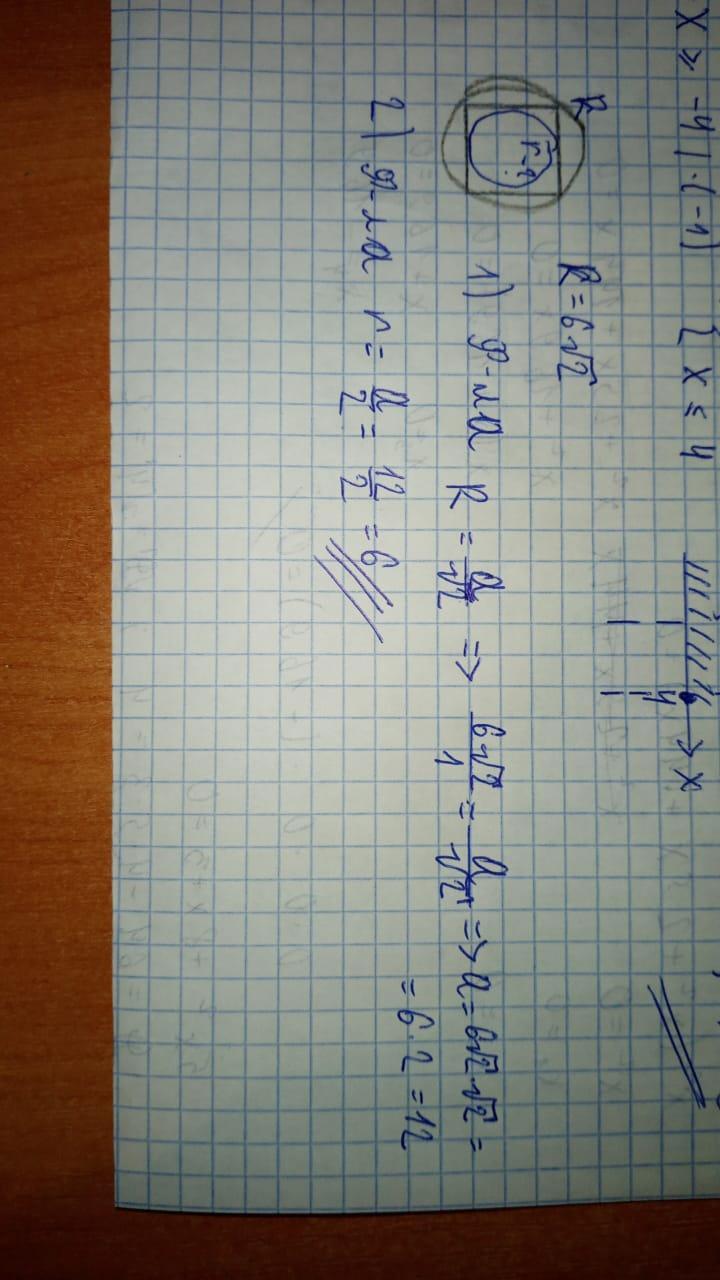 x ≥ -4 | · (-1) { x ≤ 4
4 x
R
r-?
R = 6√2
1) Ф-ла R = a/√2 => 6√2/1 = a/√2 => a = 6√2·√2 =
= 6·2 = 12
2) Ф-ла r = a/2 = 12/2 = 6